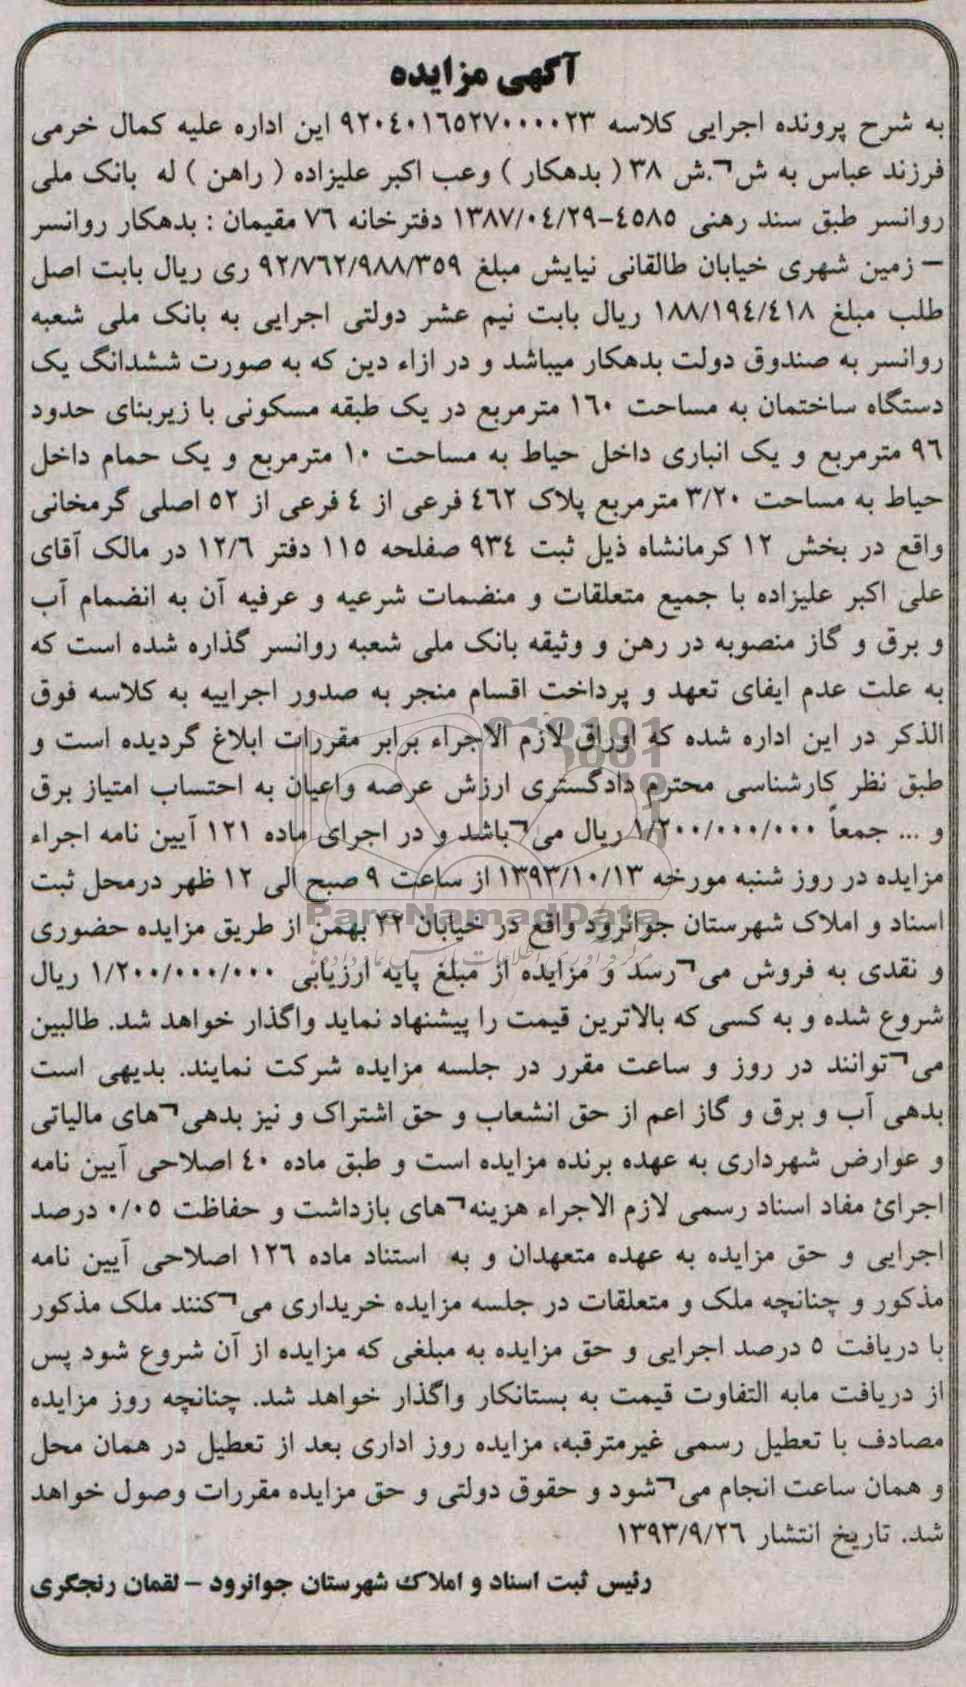 آگهی مزایده
به شرح پرونده اجرایی کلاسه ۹۲۰٤۰۱٦٥۲۷۰۰۰۰۲۳ این اداره علیه کمال خرمی
فرزند عباس به ش¬.ش ۳۸ ( بدهکار ) وعب اکبر علیزاده ( راهن ) له بانک ملی
روانسر طبق سند رهنی ٤٥۸٥-۱۳۸۷/۰٤/۲۹ دفترخانه ۷٦ مقیمان : بدهکار روانسر
– زمین شهری خیابان طالقانی نیایش مبلغ ۹۲/۷٦۲/۹۸۸/۳٥۹ ری ریال بابت اصل
طلب مبلغ ۱۸۸/۱۹٤/٤۱۸ ریال بابت نیم عشر دولتی اجرایی به بانک ملی شعبه
روانسر به صندوق دولت بدهکار میباشد و در ازاء دین که به صورت ششدانگ یک
دستگاه ساختمان به مساحت ۱٦۰ مترمربع در یک طبقه مسکونی با زیربنای حدود
۹٦ مترمربع و یک انباری داخل حیاط به مساحت ۱۰ مترمربع و یک حمام داخل
حیاط به مساحت ۳/۲۰ مترمربع پلاک ٤٦۲ فرعی از ٤ فرعی از ٥۲ اصلی گرمخانی
واقع در بخش ۱۲ کرمانشاه ذیل ثبت ۹۳٤ صفلحه ۱۱٥ دفتر ۱۲/٦ در مالک آقای
علی اکبر علیزاده با جمیع متعلقات و منضمات شرعیه و عرفیه آن به انضمام آب
و برق و گاز منصوبه در رهن و وثیقه بانک ملی شعبه روانسر گذاره شده است که
به علت عدم ایفای تعهد و پرداخت اقسام منجر به صدور اجراییه به کلاسه فوق
الذکر در این اداره شده که اوراق لازم الاجراء برابر مقررات ابلاغ گردیده است و
طبق نظر کارشناسی محترم دادگستری ارزش عرصه واعیان به احتساب امتیاز برق
و ... جمعاً ۱/۲۰۰/۰۰۰/۰۰۰ ریال می¬باشد و در اجرای ماده ۱۲۱ آیین نامه اجراء
مزایده در روز شنبه مورخه ۱۳۹۳/۱۰/۱۳ از ساعت ۹ صبح الی ۱۲ ظهر درمحل ثبت
اسناد و املاک شهرستان جوانرود واقع در خیابان ۲۲ بهمن از طریق مزایده حضوری
و نقدی به فروش می¬رسد و مزایده از مبلغ پایه ارزیابی ۱/۲۰۰/۰۰۰/۰۰۰ ریال
شروع شده و به کسی که بالاترین قیمت را پیشنهاد نماید واگذار خواهد شد. طالبین
می¬توانند در روز و ساعت مقرر در جلسه مزایده شرکت نمایند. بدیهی است
بدهی آب و برق و گاز اعم از حق انشعاب و حق اشتراک و نیز بدهی¬های مالیاتی
و عوارض شهرداری به عهده برنده مزایده است و طبق ماده ٤۰ اصلاحی آیین نامه
اجرائ مفاد اسناد رسمی لازم الاجراء هزینه¬های بازداشت و حفاظت ۰/۰٥ درصد
اجرایی و حق مزایده به عهده متعهدان و به استناد ماده ۱۲٦ اصلاحی آیین نامه
مذکور و چنانچه ملک و متعلقات در جلسه مزایده خریداری می¬کنند ملک مذکور
با دریافت ٥ درصد اجرایی و حق مزایده به مبلغی که مزایده از آن شروع شود پس
از دریافت مابه التفاوت قیمت به بستانکار واگذار خواهد شد. چنانچه روز مزایده
مصادف با تعطیل رسمی غیرمترقبه، مزایده روز اداری بعد از تعطیل در همان محل
و همان ساعت انجام می¬شود و حقوق دولتی و حق مزایده مقررات وصول خواهد
شد. تاریخ انتشار ۱۳۹۳/۹/۲٦
رئیس ثبت اسناد و املاک شهرستان جوانرود – لقمان رنجگری
ParsNamadData